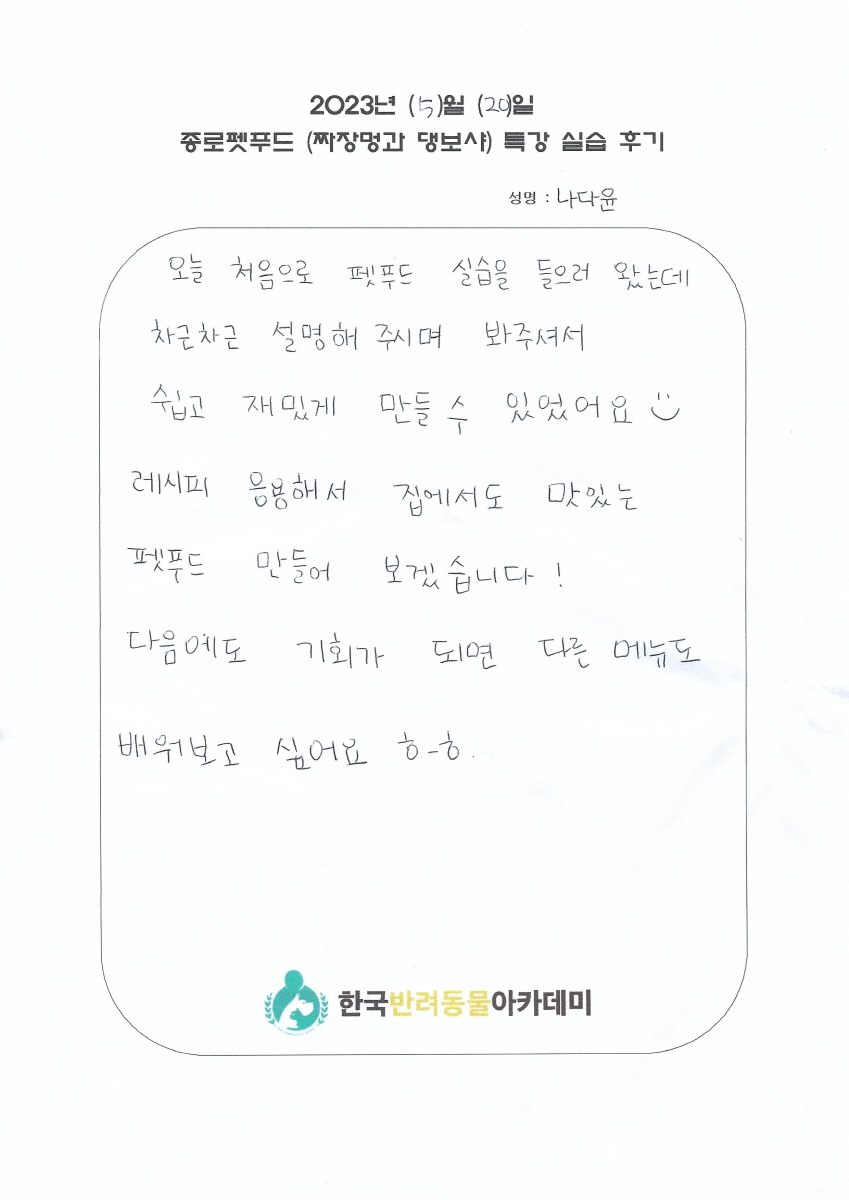 2023년 (5)월 (20)일
종로펫푸드 (짜장멍과 댕보샤) 특강 실습 후기
성명 : 나다윤
오늘 처음으로 펫푸드 실습을 들으러 왔는데
차근차근 설명해 주시며 봐주셔서
쉽고 재밌게 만들 수 있었어요
레시피 응용해서 집에서도 맛있는
펫푸드 만들어 보겠습니다!
다음에도 기회가 되면 다른 메뉴도
배워보고 싶어요 ㅎ-ㅎ.
한국반려동물아카데미